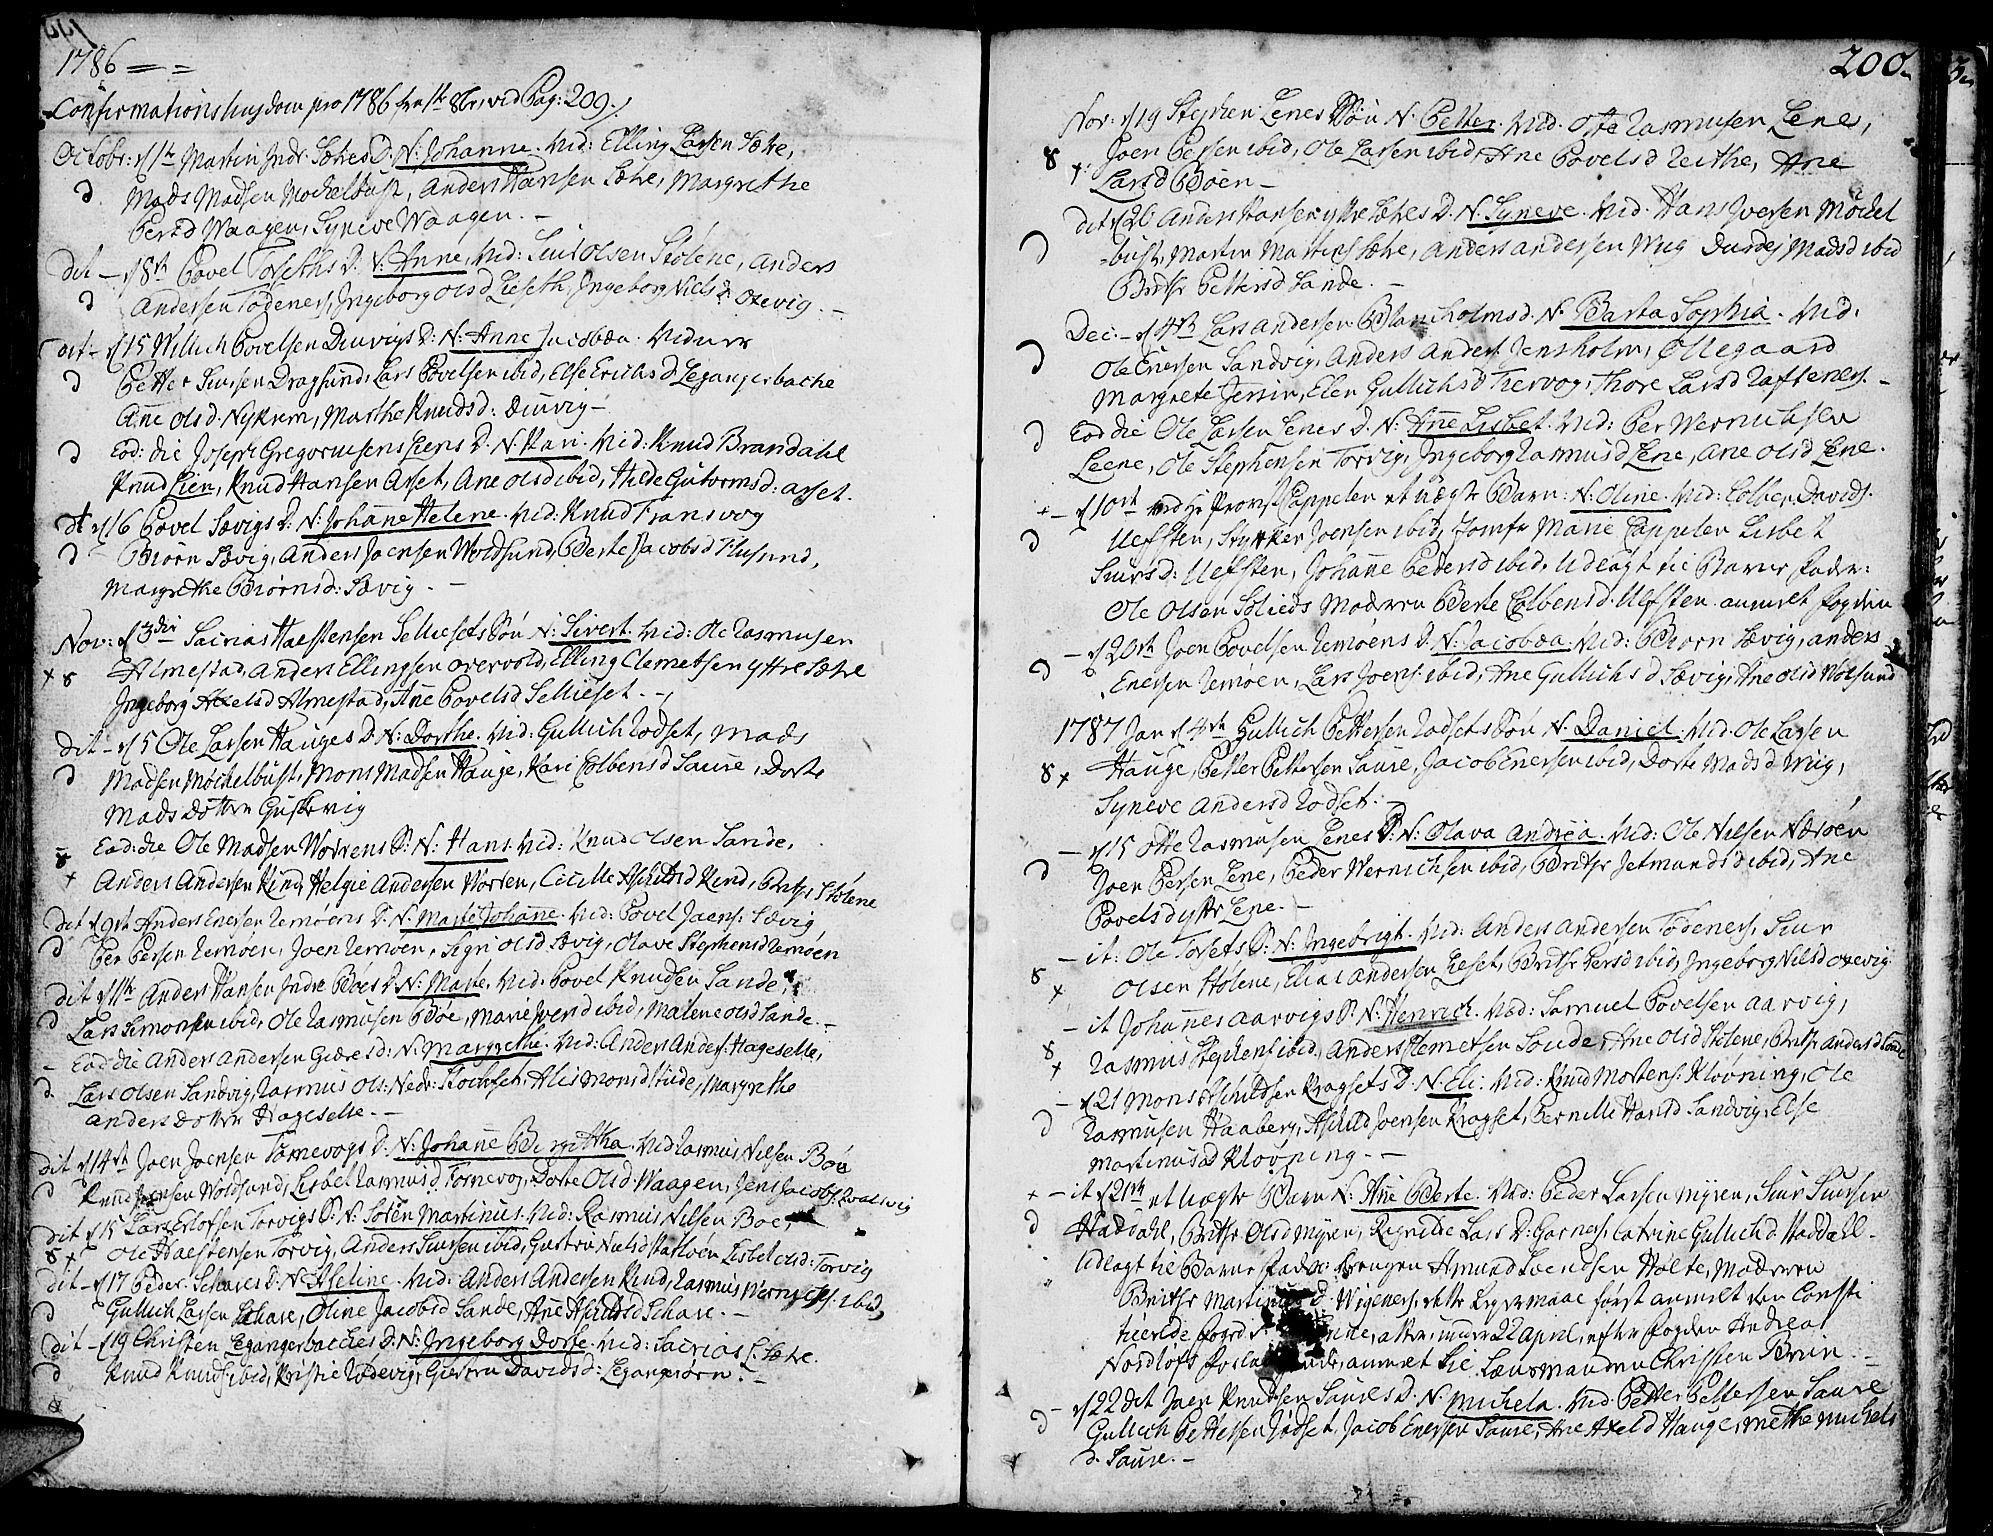 1786 = =
Confirmations hujdom pro 1786 fra 1te 8br, vid Pag: 209.
Octobr: d 1te Martin Indr Sætres D. N: Johanne. Vid: Elling Larsen Sætre,
d Mads Madsen Mochelbust, Anders Hansen Sætre, Margrethe
Persd Waagen, Syneve Waagen. —
Dit — d 8te Povel Torseths D. N: Anne. Vid: Siur Olsen Stolene, Anders
d Andersen Tødenes, Ingeborg Olsd Liseth, Ingeborg Nielsd Orevig. —
Dit — d 15 Willich Povelsen Diuvigs D: N: Anne Jacobæa. Vidner
d Petter Siursen Dragsund, Lars Povelsen ibid, Else Erichsd Leganger bache
Ane Olsd. Nykrem, Marthe Knudsd: Diuvig —
d Eod: die Joseph Gregoriusens Liens D. N. Kari. Vid: Knud Brandahl
Knud Lien, Knud Hansen Aaset, Ane Olsd ibid, Hilde Gutormsd: Aaset.
Dt d 16 Povel Sævigs D: N: Johanne Helene. Vid: Knud Fransvog
d Biorn Sævig, Anders Joensen Woldsund, Berte Jacobsd Flusund,
Margrethe Biørnsd: Sævig. —
Nov: d 3die Sacrias Haestensen Sellieset Søn N: Sivert. Vid: Ole Rasmusen
+ 8 Almestad, Anders Ellingsen Overvold, Elling Clemetsen yttre Sætre
Ingeborg Axelsd Almestad, Ane Povelsd Sellieset. —
Dit — d 5 Ole Larsen Hauges D. N: Dorthe. Vid: Gullich Rødset, Mads
d Madsen Møchelbust, Mons Madsen Hauge, Kari Colbensd Saure, Dorte
Mads dotter Guskevig
8 Eod: die Ole Madsen Wørrens S: N: Hans. Vid: Knud Olsen Sande,
+ Anders Andersen Rind, Helgie Andersen Worren, Cicille Aschildsd Rind, Brithe Stolene
Dit d 9te Anders Enersen Remøens D. N. Marte Johanne. Vid: Povel Joens: Sævig,
d Per Persen Remøen, Joen Remøen, Sign Olsd Sævig, Olave Stephensd Remøen
Dit d 11te Anders Hansen Indre Bøes D. N: Marte. Vid: Povel Knudsen Sande,
d Lars Simonsen ibid, Ole Rasmusen Bøe, Marie Iversd ibid, Malene Olsd Sande. —
— Eod die Anders Andersen Giæresd: N: Margrethe. Vid: Anders Anders: Hageselle,
d. Lars Olsen Sandvig, Rasmus Ols: Nedr: Flochset, Alis Monsd Hide, Margrethe
Anders dotter Hageselle. —
Dit d 14te Joen Joensen Tornevogs D. N: Johanne Birgitha. Vid Rasmus Nilsen Bøe
d Knud Jensen Woldsund, Lisbet Rasmusd Tornevog, Dorte Olsd Waagen, Jens Jacobs: Qvalsvig
Dit d 15 Lars Erlofsen Torvigs S: N: Søren Martinus. Vid: Rasmus Nilsen Boe,
8 + Ole Haestensen Torvig, Anders Siursen ibid, Giertru Nielsd Saltvøen Lisbet Olsd: Torvig
Dit — d 17 Peder Schares D. N. Aseline. Vid: Anders Andersen Rind, Rasmus Wernichs: ibid,
d Gullich Larsen Schare, Oline Jacobsd Sande, Ane Aschildsd Schare. —
Dit — d 19 Christen Legangerbaches D. N: Ingeborg Dorte. Vid: Sacrias L: Sætre.
d Knud Knuds: ibid, Kristie Rødevig, Giertru Davidsd: Legangeiørn. —
200.
Nov: d 19 Stephen Lenes Søn N: Petter. Vid. Otte Rasmusen Lene,
8 + Joen Persen ibid, Ole Larsen ibid, Ane Povelsd Reithe, Ane
Larsd Bøen —
Dit d 26 Anders Hansen yttre Sætres D. N: Syneve. Vid. Hans Iversen Møckel
d bust, Martin Martins: Sætre, Anders Andersen Wiig Durdej Madsd ibid
Brithe Pettersd Sande. —
Dec: — d 4de Lars Andersen Blancholmsd. N. Barta Sophia. Vid.
d Ole Enersen Sandvig, Anders Anders: Jensholm, Ollegaard
Margrete Jersin, Elen Gullichsd Tiervog, Thore Larsd Raftenes. —
d Eod die Ole Larsen Lenes D. N: Ane Lisbet. Vid: Per Wernichsen
Leene, Ole Stephensen Torvig, Ingeborg Rasmusd Lene, Ane Olsd Lene.
+ — d 10de ved Hr Provst Cappelen et uægte Barn: N: Oline. Vid: Colben Davids:
d Ulfsten, Stytter Joensen ibid, Jomfr Marie Cappelen Lisbet
Siursd: Ulfsten, Johanne Pedersd ibid. Udlagt til Barne fader:
Ole Olsen Solieds Moderen Berte Colbensd. Ulfsten. anmelt fogden
— d 20de Joen Povelsen Remøens D. N: Jacobæa. Vid: Biorn Sævig, Anders
d Enersen Remøen, Lars Joens: ibid, Ane Gullichsd Sævig, Ane Olsd Wolsund
1787 Jan d 4de Gullich Pettersen Rødsets Søn N. Daniel. Vid. Ole Larsen
8 + Hauge, Petter Pettersen Saure, Jacob Enersen ibid, Dorte Madsd Wiig,
Syneve Andersd Rødset. —
— d 15 Otte Rasmusen Lenes D. N: Olava Andrea. Vid: Ole Nilsen Nærøen
d Joen Persen Lene, Peder Wernichsen ibid, Brithe Jetmundsd ibid, Ane
Povelsd yttr Lene. —
— it: Ole Torsets S: N: Ingebrigt. Vid: Anders Andersen Tødenes, Siur
8 + Olsen Stolene, Elias Andersen Liset, Brithe Persd ibid, Ingeborg Nilsd Orevig
— it Johannes Aarvigs S: N: Henrich. Vid: Samuel Povelsen Aarvig,
8 + Rasmus Stephens ibid, Anders Clemetsen Sonde, Ane Olsd Stolene, Brithe Andersd Sande
— d 21 Mons Aschildsen Kragsets D. N. Eli. Vid: Knud Mortens: Klovning, Ole
d Rasmusen Haaberg, Aschild Joensen Kragset, Pernille Hansd Sandvig, Else
Martinusd Klovning. —
+ — it d 21de et uægte Barn N: Ane Berte. Vid: Peder Larsen Myren, Siur Siursen
d Haddahl, Brithe Olsd Myren, Ragnilde Lars D: Garnes, Catrine Gullichsd Haddahl.
Udlagt til Barne fader Drengen Amund Svendsen Holte, Moderen
Brithe Martinus D. Wigenes, dette leyermaal først anmelt den Consti
tuerede fogd, under 22 April, efter fogden Andreas
Nordlofs, anmelt til Lænsmanden Christen Brun. —
— d 22 Dit Joen Knudsen Saures D. N. Michela. Vid. Petter Pettersen Saure
d Gullich Pettersen Rødset, Jacob Enersen Saure, Ane Axelsd Hauge, Mette Michels
d. Saure. —